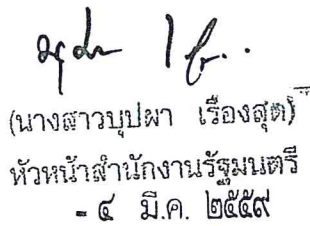 (นางสาวบุปผา เรืองสุด)
หัวหน้าสำนักงานรัฐมนตรี
- ๔ มี.ค. ๒๕๕๙